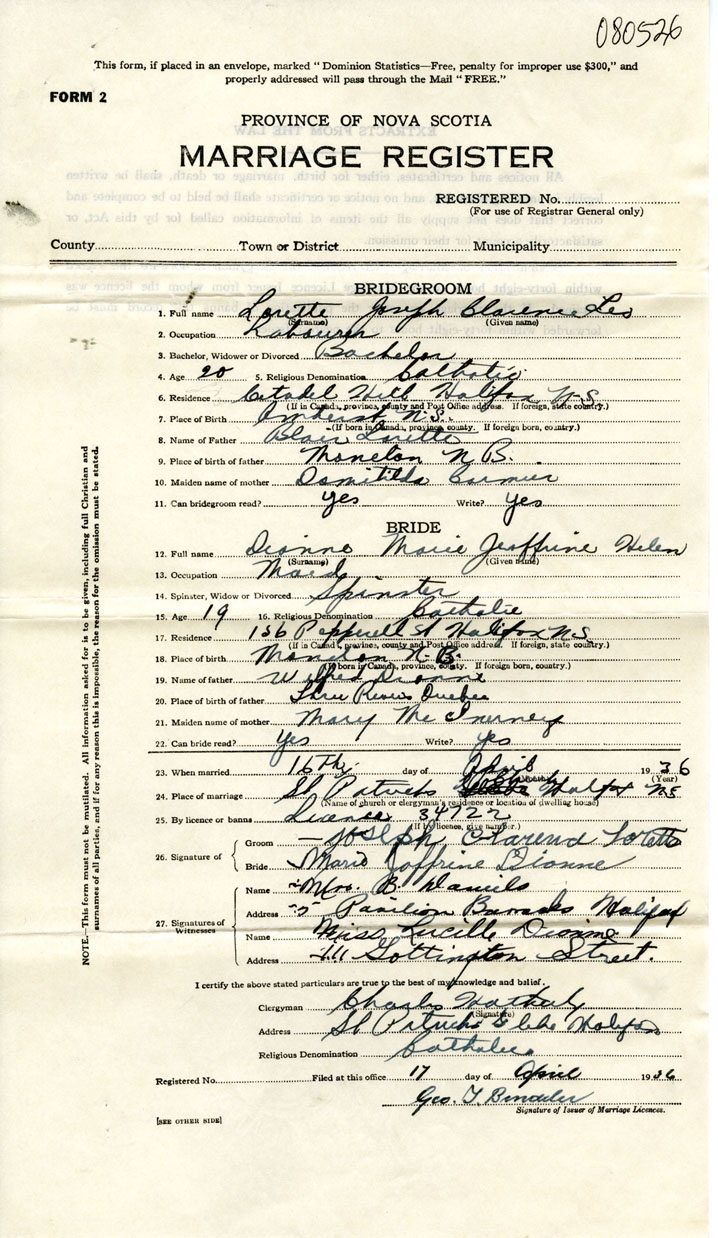 080526
This form, if placed in an envelope, marked "Dominion Statistics—Free, penalty for improper use $300," and
properly addressed will pass through the Mail "FREE."
FORM 2
PROVINCE OF NOVA SCOTIA
MARRIAGE REGISTER
REGISTERED No.
(For use of Registrar General only)
County Town or District Municipality
BRIDEGROOM
1. Full name Lorette Joseph Clarence Les
(Surname) (Given name)
2. Occupation Labourer
3. Bachelor, Widower or Divorced Bachelor
4. Age 20 5. Religious Denomination Catholic
6. Residence Citadel Hill Halifax N.S.
(If in Canada, province, county and Post Office address. If foreign, state country.)
7. Place of Birth Amherst N.S.
(If born in Canada, province, county. If foreign born, country.)
8. Name of Father Blair Lorette
9. Place of birth of father Moncton N.B.
10. Maiden name of mother Domitilda Cormier
11. Can bridegroom read? yes Write? yes
BRIDE
12. Full name Dionne Marie Jeoffrine Helen
(Surname) (Given name)
13. Occupation Maid
14. Spinster, Widow or Divorced Spinster
15. Age 19 16. Religious Denomination Catholic
17. Residence 156 Pepperell St Halifax N.S.
(If in Canada, province, county and Post Office Address. If foreign, state country.)
18. Place of birth Moncton N.B.
(If born in Canada, province, county. If foreign born, country.)
19. Name of father Wilfred Dionne
20. Place of birth of father Three Rivers Quebec
21. Maiden name of mother Mary McInerney
22. Can bride read? Yes Write? yes
23. When married 16th day of April 1936
(Month) (Year)
24. Place of marriage St Patricks Halifax NS
(Name of church or clergyman's residence or location of dwelling house)
25. By licence or banns Licence 34722
(If by licence, give number.)
26. Signature of Groom Joseph Clarence Lorette
Bride Marie Joffrine Dionne
27. Signatures of Witnesses
Name Mrs. B. Daniels
Address Pavilion Barracks Halifax
Name Miss Lucille Dionne
Address Gottington Street.
I certify the above stated particulars are true to the best of my knowledge and belief.
Clergyman Charles
(Signature)
Address St Patricks Glebe Halifax
Religious Denomination Catholic
Registered No. Filed at this office 17 day of April 1936
Geo. T.
Signature of Issuer of Marriage Licences.
[SEE OTHER SIDE]
NOTE.—This form must not be mutilated. All information asked for is to be given, including full Christian and
surnames of all parties, and if for any reason this is impossible, the reason for the omission must be stated.